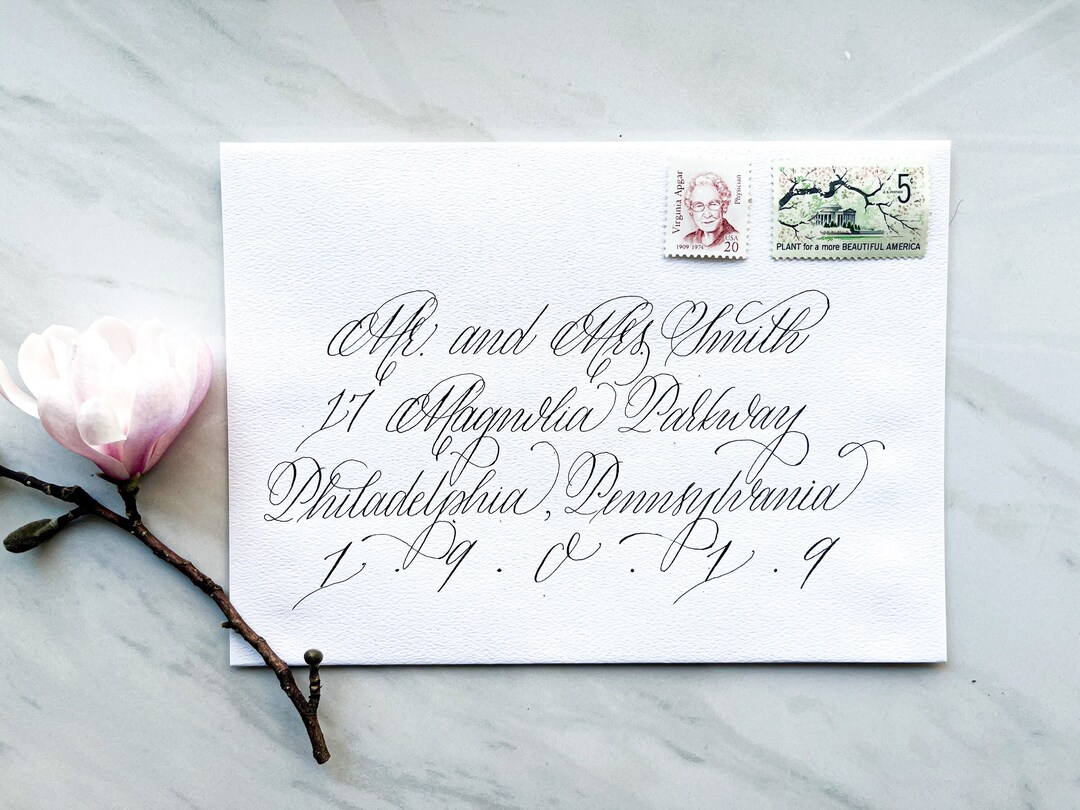 Virginia Apgar
Physician
1909 1974
USA
20
5c
PLANT for a more BEAUTIFUL AMERICA
Mr. and Mrs. Smith
17 Magnolia Parkway
Philadelphia, Pennsylvania
1 . 9 . 0 . 1 . 9